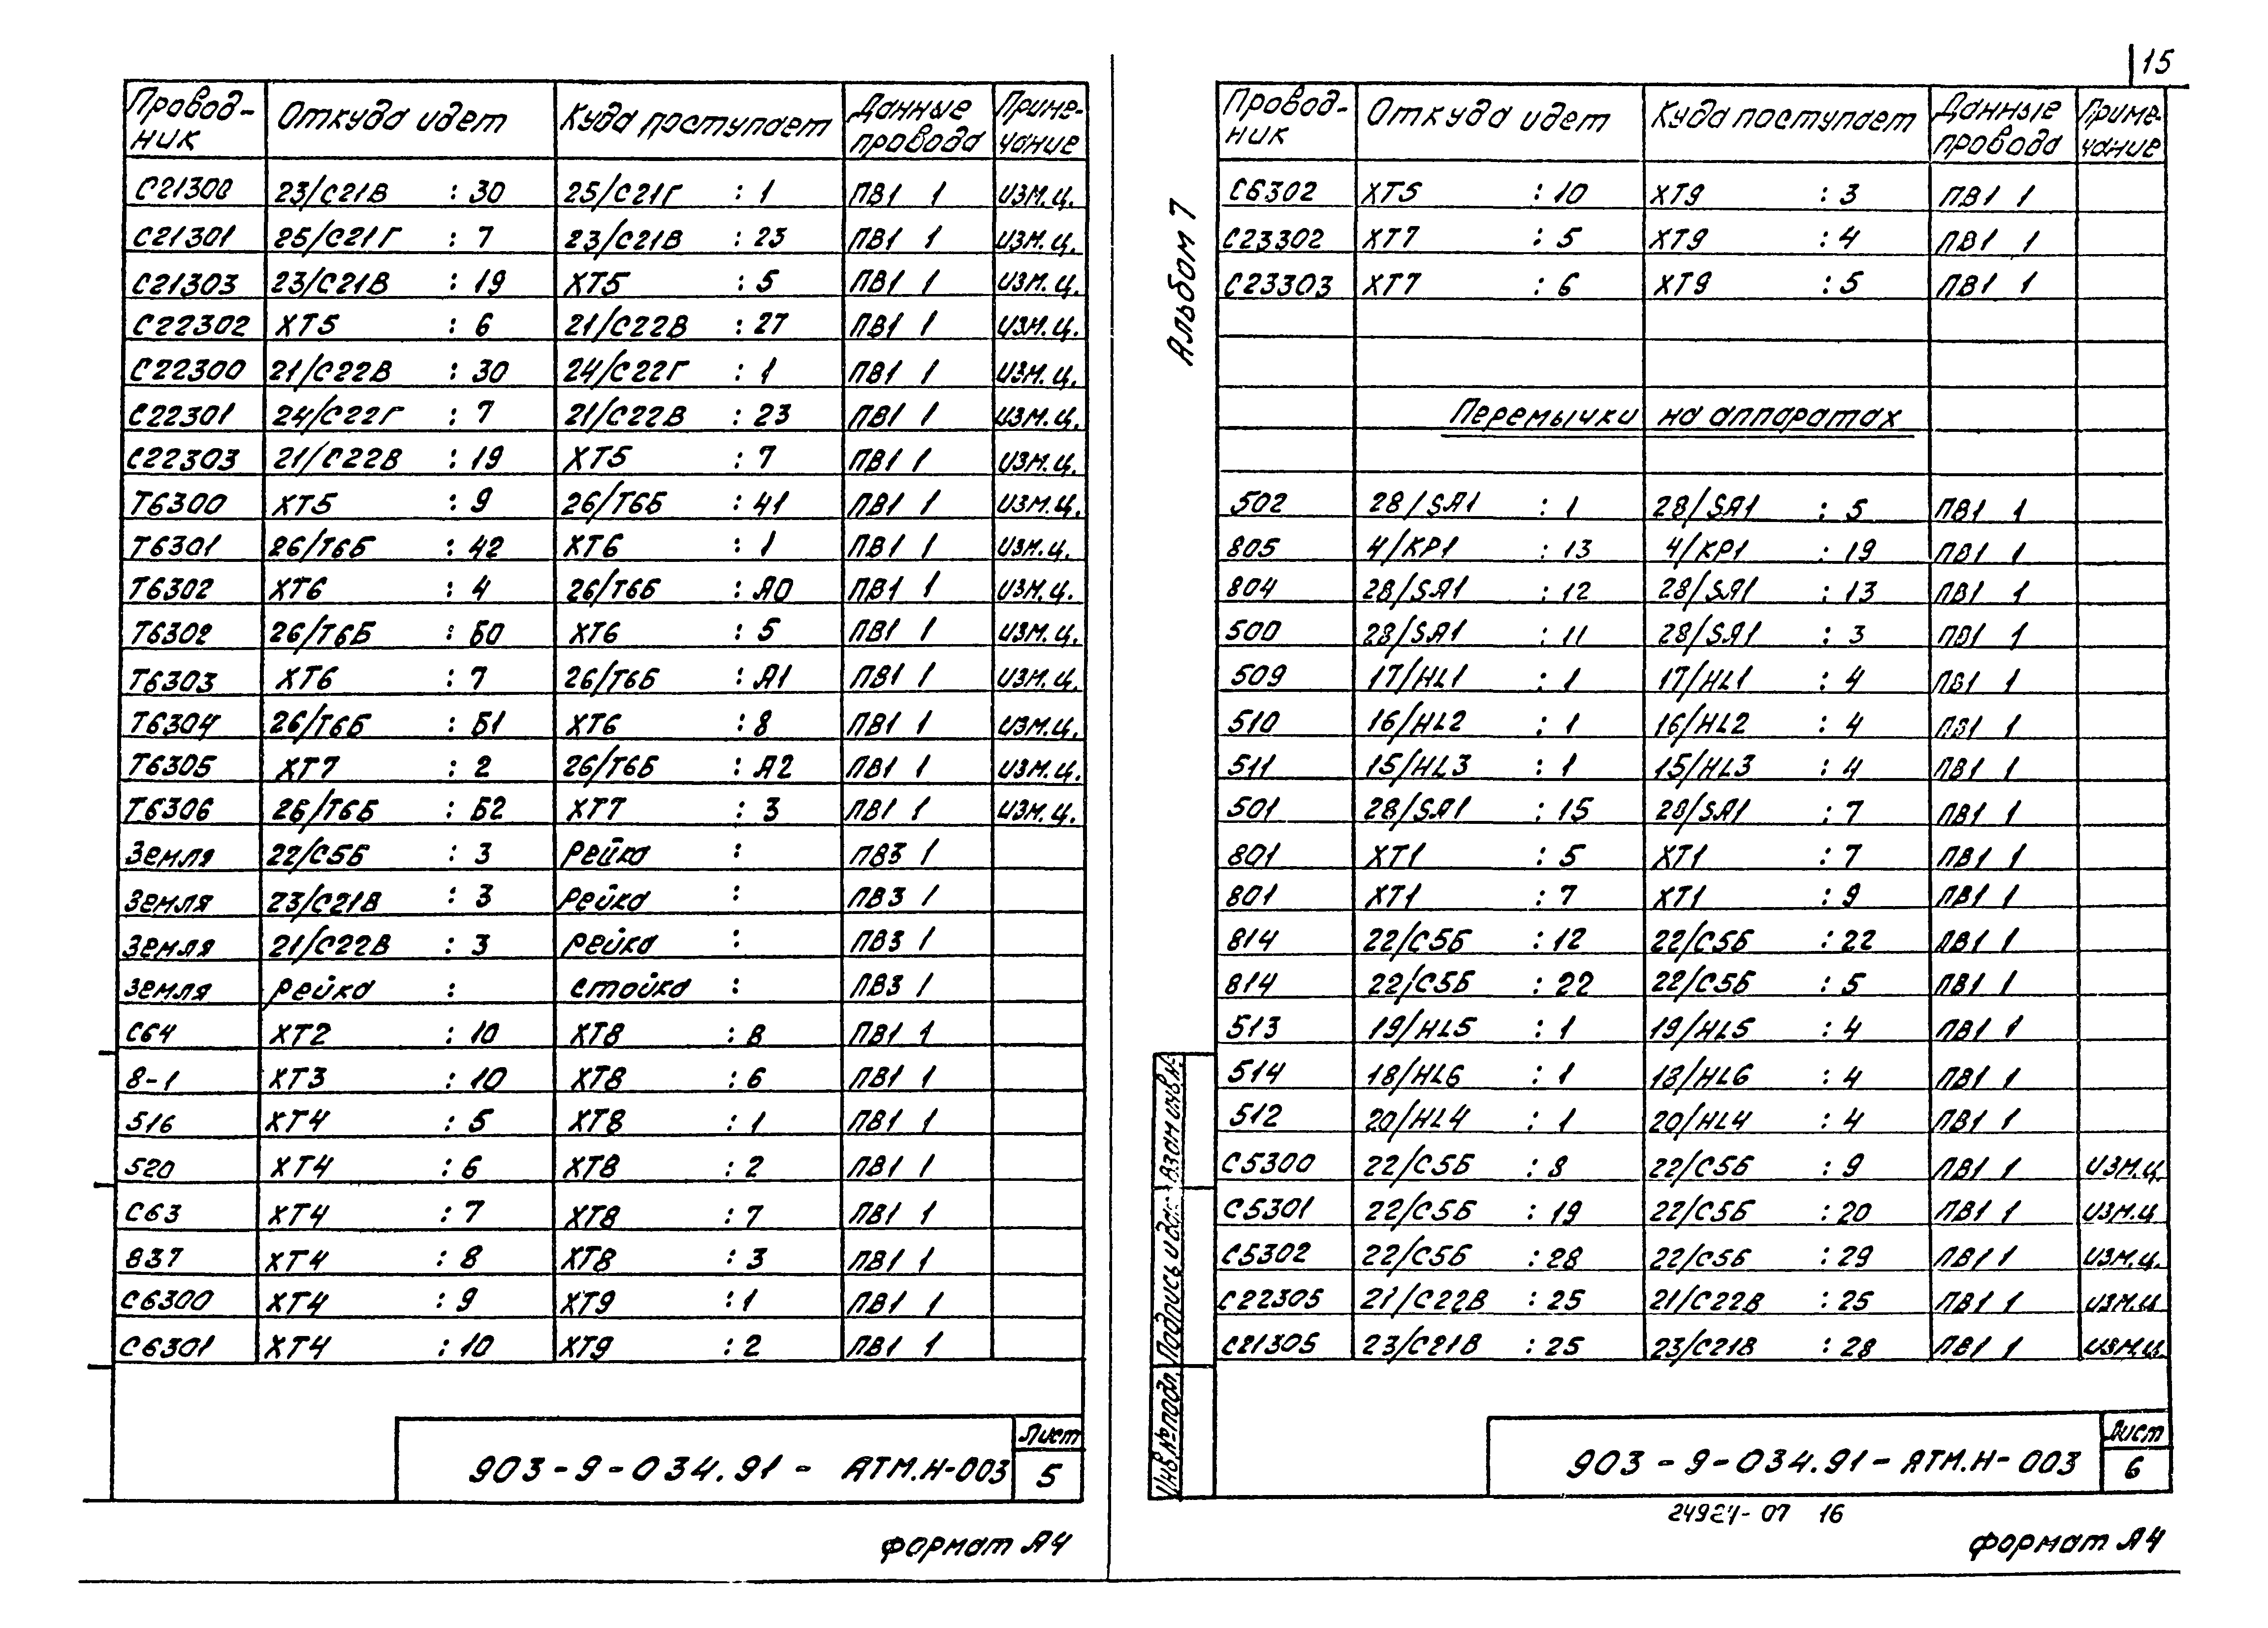 Провод-ник Откуда идет Куда поступает Данные провода Приме-чание
С21300 23/С21В :30 25/С21Г :1 ПВ1 1 изм.ц.
С21301 25/С21Г :7 23/С21В :23 ПВ1 1 изм.ц.
С21303 23/С21В :19 ХТ5 :5 ПВ1 1 изм.ц.
С22302 ХТ5 :6 21/С22В :27 ПВ1 1 изм.ц.
С22300 21/С22В :30 24/С22Г :1 ПВ1 1 изм.ц.
С22301 24/С22Г :7 21/С22В :23 ПВ1 1 изм.ц.
С22303 21/С22В :19 ХТ5 :7 ПВ1 1 изм.ц.
Т6300 ХТ5 :9 26/Т6Б :41 ПВ1 1 изм.ц.
Т6301 26/Т6Б :42 ХТ6 :1 ПВ1 1 изм.ц.
Т6302 ХТ6 :4 26/Т6Б :А0 ПВ1 1 изм.ц.
Т6302 26/Т6Б :Б0 ХТ6 :5 ПВ1 1 изм.ц.
Т6303 ХТ6 :7 26/Т6Б :А1 ПВ1 1 изм.ц.
Т6304 26/Т6Б :Б1 ХТ6 :8 ПВ1 1 изм.ц.
Т6305 ХТ7 :2 26/Т6Б :А2 ПВ1 1 изм.ц.
Т6306 26/Т6Б :Б2 ХТ7 :3 ПВ1 1 изм.ц.
Земля 22/С5Б :3 Рейка : ПВ3 1
Земля 23/С21В :3 Рейка : ПВ3 1
Земля 21/С22В :3 Рейка : ПВ3 1
Земля Рейка : стойка : ПВ3 1
С64 ХТ2 :10 ХТ8 :8 ПВ1 1
8-1 ХТ3 :10 ХТ8 :6 ПВ1 1
516 ХТ4 :5 ХТ8 :1 ПВ1 1
520 ХТ4 :6 ХТ8 :2 ПВ1 1
С63 ХТ4 :7 ХТ8 :7 ПВ1 1
837 ХТ4 :8 ХТ8 :3 ПВ1 1
С6300 ХТ4 :9 ХТ9 :1 ПВ1 1
С6301 ХТ4 :10 ХТ9 :2 ПВ1 1
903-9-034.91- АТМ.Н-003
Лист
5
формат А4
15
Альбом 7
Провод-ник Откуда идет Куда поступает Данные провода Приме-чание
С6302 ХТ5 :10 ХТ9 :3 ПВ1 1
С23302 ХТ7 :5 ХТ9 :4 ПВ1 1
С23303 ХТ7 :6 ХТ9 :5 ПВ1 1
Перемычки на аппаратах
502 28/SA1 :1 28/SA1 :5 ПВ1 1
805 4/КР1 :13 4/КР1 :19 ПВ1 1
804 28/SA1 :12 28/SA1 :13 ПВ1 1
500 28/SA1 :11 28/SA1 :3 ПВ1 1
509 17/HL1 :1 17/HL1 :4 ПВ1 1
510 16/HL2 :1 16/HL2 :4 ПВ1 1
511 15/HL3 :1 15/HL3 :4 ПВ1 1
501 28/SA1 :15 28/SA1 :7 ПВ1 1
801 ХТ1 :5 ХТ1 :7 ПВ1 1
801 ХТ1 :7 ХТ1 :9 ПВ1 1
814 22/С5Б :12 22/С5Б :22 ПВ1 1
814 22/С5Б :22 22/С5Б :5 ПВ1 1
513 19/HL5 :1 19/HL5 :4 ПВ1 1
514 18/HL6 :1 18/HL6 :4 ПВ1 1
512 20/HL4 :1 20/HL4 :4 ПВ1 1
С5300 22/С5Б :8 22/С5Б :9 ПВ1 1 изм.ц.
С5301 22/С5Б :19 22/С5Б :20 ПВ1 1 изм.ц.
С5302 22/С5Б :28 22/С5Б :29 ПВ1 1 изм.ц.
С22305 21/С22В :25 21/С22В :25 ПВ1 1 изм.ц.
С21305 23/С21В :25 23/С21В :28 ПВ1 1 изм.ц.
Инв.№ подл. Подпись и Взам инв.№
903-9-034.91-АТМ.Н-003
Лист
6
07 16
формат А4